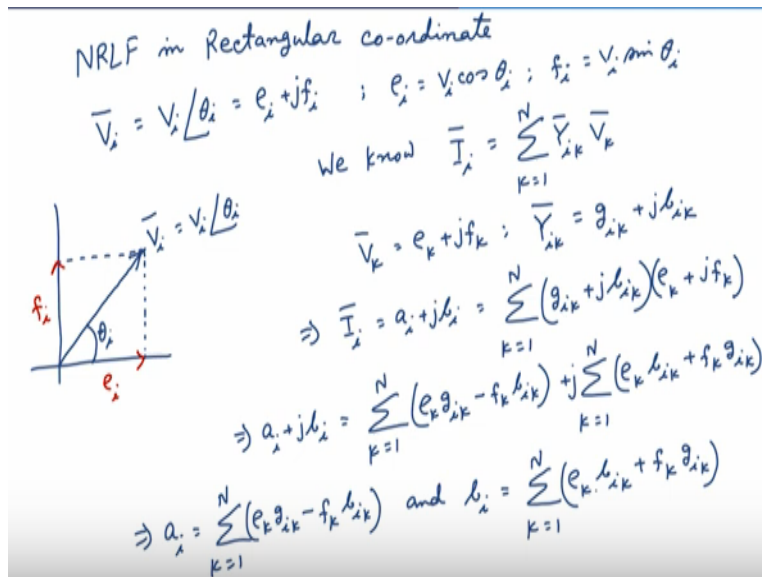 NRLF in Rectangular co-ordinate
V̅ᵢ = Vᵢ∠θᵢ = eᵢ + jfᵢ ; eᵢ = Vᵢ cos θᵢ ; fᵢ = Vᵢ sin θᵢ
We know I̅ᵢ = ∑_{k=1}^{N} Y̅ᵢₖ V̅ₖ
V̅ᵢ = Vᵢ∠θᵢ
fᵢ
θᵢ
eᵢ
V̅ₖ = eₖ + jfₖ ; Y̅ᵢₖ = gᵢₖ + jbᵢₖ
⇒ I̅ᵢ = aᵢ + jbᵢ = ∑_{k=1}^{N} (gᵢₖ + jbᵢₖ)(eₖ + jfₖ)
⇒ aᵢ + jbᵢ = ∑_{k=1}^{N} (eₖgᵢₖ − fₖbᵢₖ) + j∑_{k=1}^{N} (eₖbᵢₖ + fₖgᵢₖ)
⇒ aᵢ = ∑_{k=1}^{N} (eₖgᵢₖ − fₖbᵢₖ) and bᵢ = ∑_{k=1}^{N} (eₖbᵢₖ + fₖgᵢₖ)